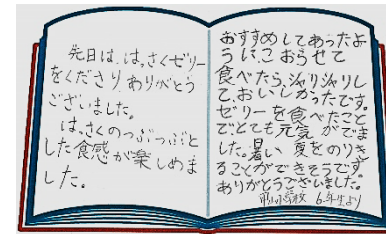 先日は、はっさくゼリー
をくださり、ありがとう
ございました。
はっさくのつぶつぶと
した食感が楽しめま
した。
おすすめしてあったよ
うに、こおらせて
食べたら、シャリシャリし
て、おいしかったです。
ゼリーを食べたこと
でとても元気がでま
した。暑い夏をのりき
ることができそうです。
ありがとうございました。
小学校 6年生より